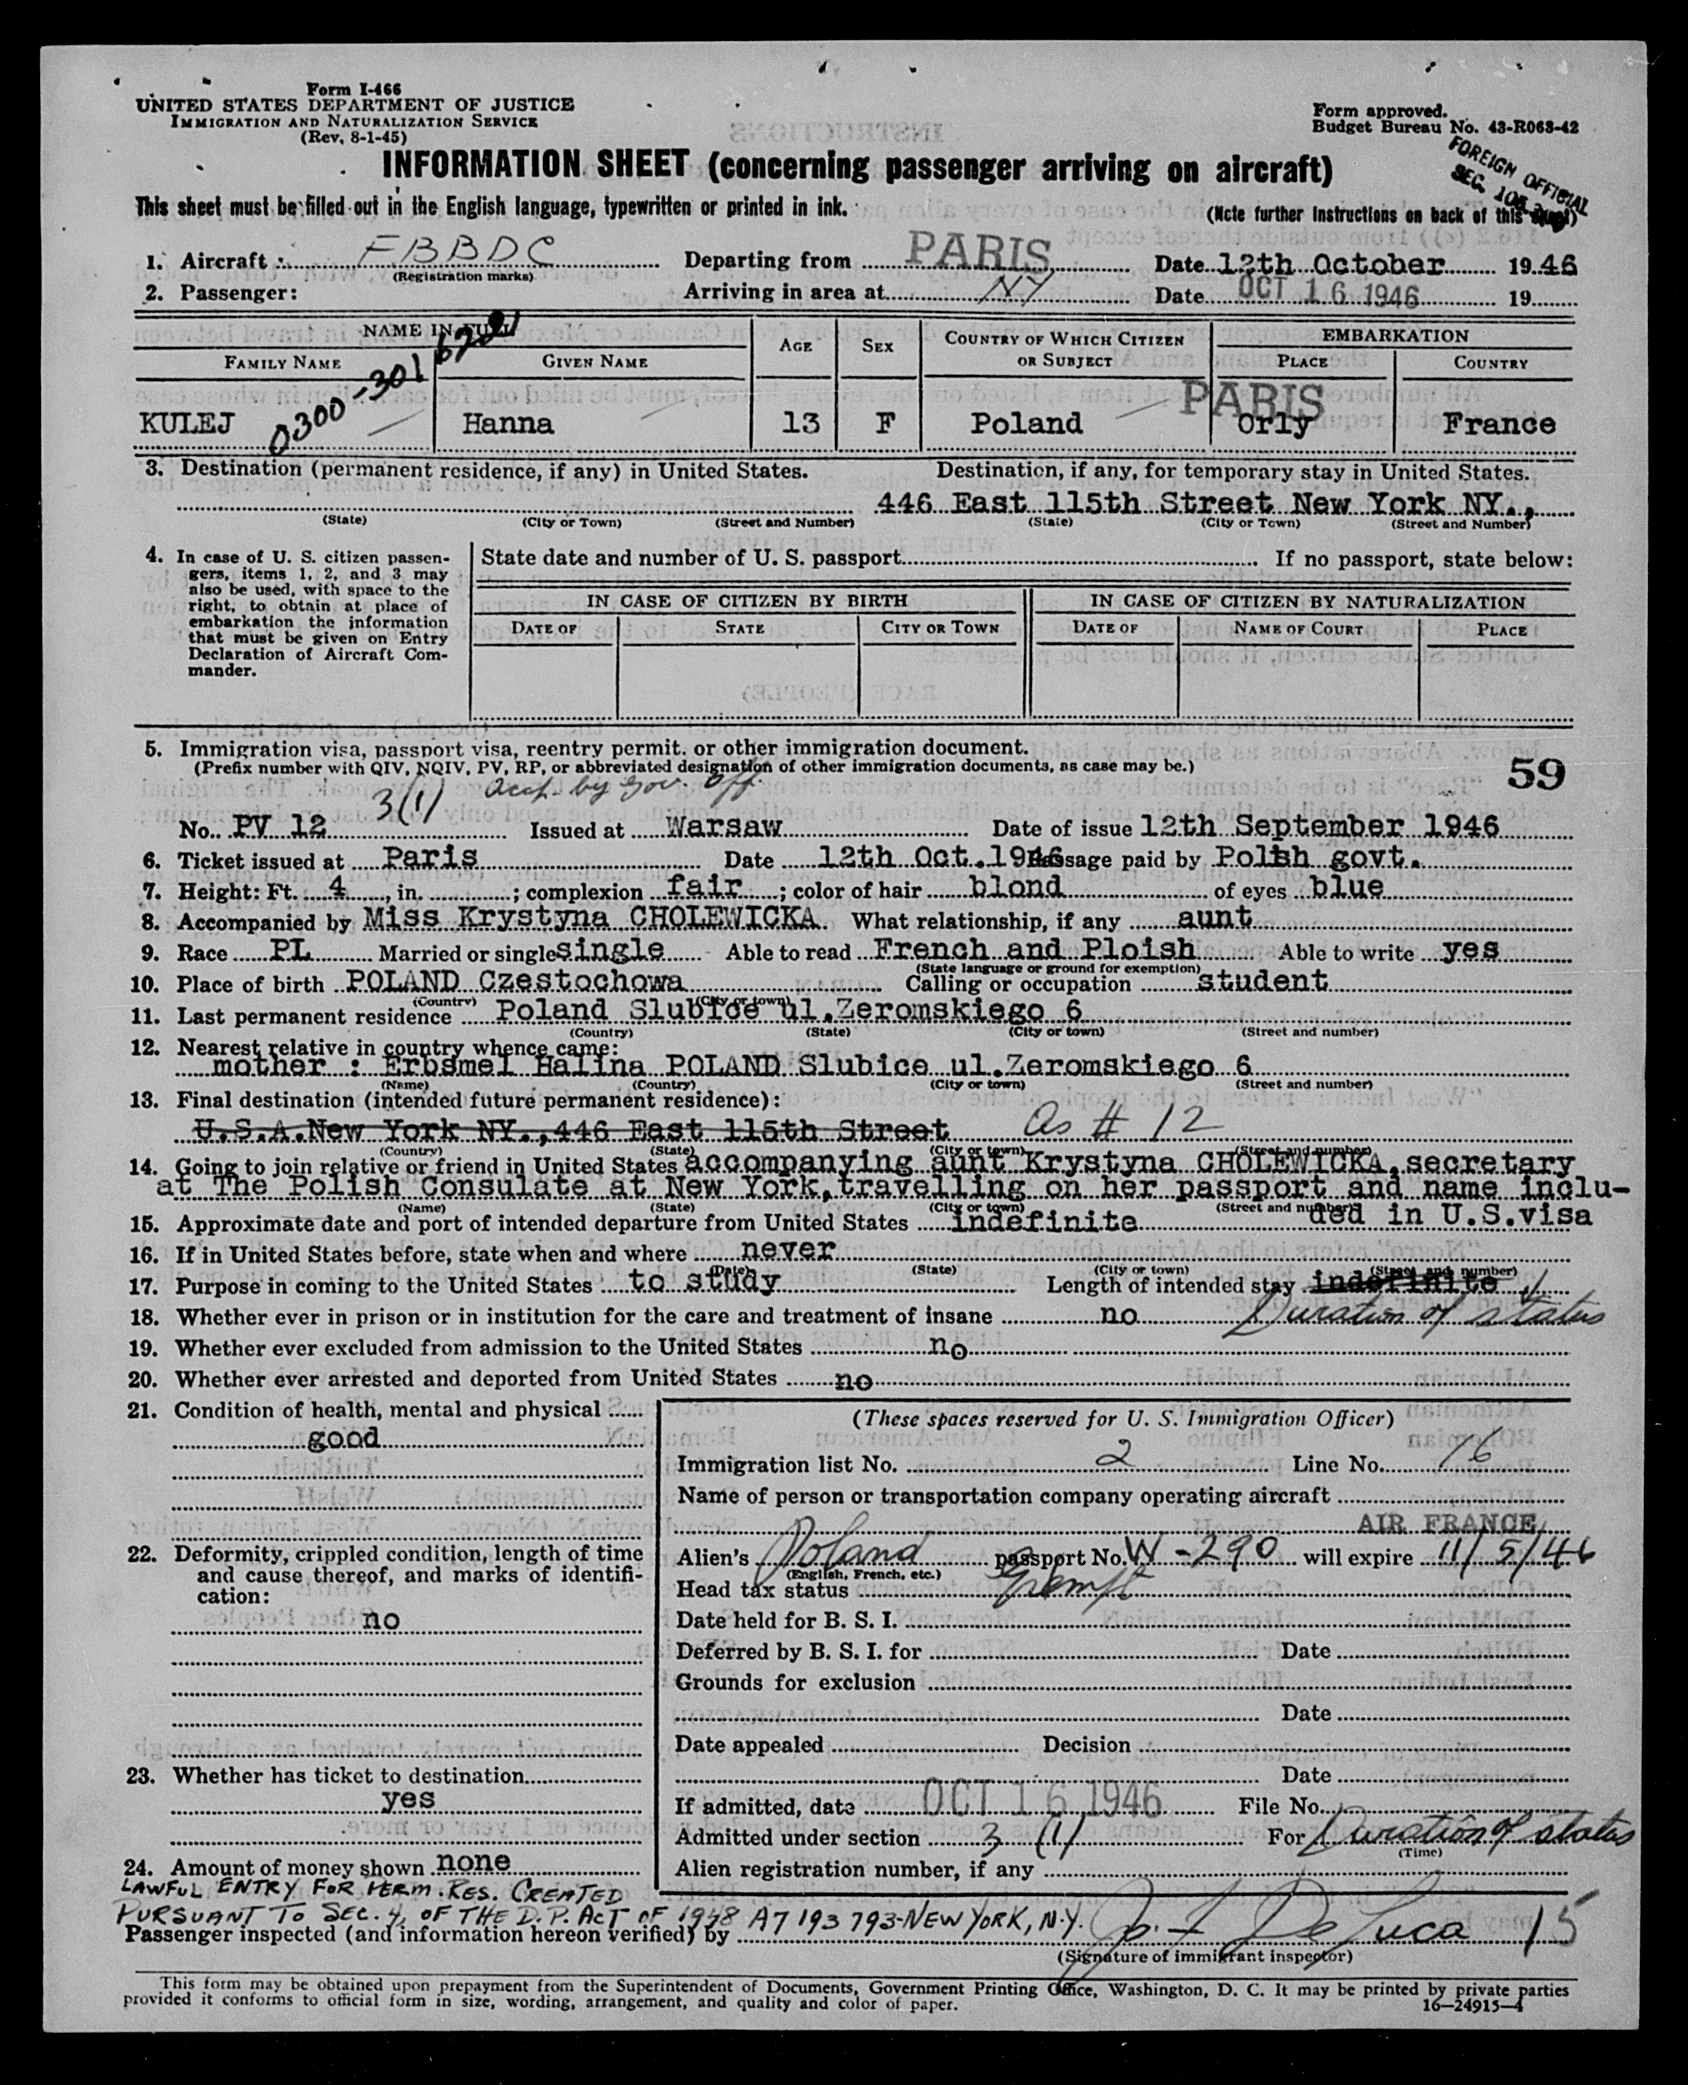 Form I-466
UNITED STATES DEPARTMENT OF JUSTICE
IMMIGRATION AND NATURALIZATION SERVICE
(Rev. 8-1-45)
Form approved.
Budget Bureau No. 43-R063-42
FOREIGN OFFICIAL
SEC.
INFORMATION SHEET (concerning passenger arriving on aircraft)
This sheet must be filled out in the English language, typewritten or printed in ink. (Note further instructions on back of this sheet)
1. Aircraft FBBDC Departing from PARIS Date 12th October 1946
(Registration marks)
2. Passenger: Arriving in area at NY Date OCT 16 1946 19
NAME IN FULL AGE SEX COUNTRY OF WHICH CITIZEN OR SUBJECT EMBARKATION
FAMILY NAME GIVEN NAME PLACE COUNTRY
0300-301
PARIS
KULEJ Hanna 13 F Poland Orly France
3. Destination (permanent residence, if any) in United States. Destination, if any, for temporary stay in United States.
446 East 115th Street New York NY.,
(State) (City or Town) (Street and Number) (State) (City or Town) (Street and Number)
4. In case of U. S. citizen passen-
gers, items 1, 2, and 3 may
also be used, with space to the
right, to obtain at place of
embarkation the information
that must be given on Entry
Declaration of Aircraft Com-
mander.
State date and number of U. S. passport If no passport, state below:
IN CASE OF CITIZEN BY BIRTH IN CASE OF CITIZEN BY NATURALIZATION
DATE OF STATE CITY OR TOWN DATE OF NAME OF COURT PLACE
5. Immigration visa, passport visa, reentry permit, or other immigration document.
(Prefix number with QIV, NQIV, PV, RP, or abbreviated designation of other immigration documents, as case may be.)
59
3(1) Acc. by Gov. Off.
No. PV 12 Issued at Warsaw Date of issue 12th September 1946
6. Ticket issued at Paris Date 12th Oct.1946 Passage paid by Polish govt.
7. Height: Ft. 4, in. ; complexion fair ; color of hair blond of eyes blue
8. Accompanied by Miss Krystyna CHOLEWICKA What relationship, if any aunt
9. Race PL Married or single single Able to read French and Ploish Able to write yes
(State language or ground for exemption)
10. Place of birth POLAND Czestochowa Calling or occupation student
(Country) (City or town)
11. Last permanent residence Poland Slubice ul.Zeromskiego 6
(Country) (State) (City or town) (Street and number)
12. Nearest relative in country whence came:
mother : Erbsmel Halina POLAND Slubice ul.Zeromskiego 6
(Name) (Country) (City or town) (Street and number)
13. Final destination (intended future permanent residence):
U.S.A.New York NY.,446 East 115th Street As # 12
(Country) (State) (City or town) (Street and number)
14. Going to join relative or friend in United States accompanying aunt Krystyna CHOLEWICKA,secretary
at The Polish Consulate at New York,travelling on her passport and name inclu-
(Name) (State) (City or town) (Street and number)
ded in U.S.visa
15. Approximate date and port of intended departure from United States indefinite
16. If in United States before, state when and where never
(Date) (State) (City or town) (Street and number)
17. Purpose in coming to the United States to study Length of intended stay indefinite
Duration of status
18. Whether ever in prison or in institution for the care and treatment of insane no
19. Whether ever excluded from admission to the United States no
20. Whether ever arrested and deported from United States no
21. Condition of health, mental and physical
good
22. Deformity, crippled condition, length of time
and cause thereof, and marks of identifi-
cation:
no
23. Whether has ticket to destination
yes
24. Amount of money shown none
(These spaces reserved for U. S. Immigration Officer)
Immigration list No. 2 Line No. 16
Name of person or transportation company operating aircraft
AIR FRANCE
Alien's Poland passport No. W-290 will expire 11/5/46
(English, French, etc.)
Head tax status Exempt
Date held for B. S. I.
Deferred by B. S. I. for Date
Grounds for exclusion
Date
Date appealed Decision
Date
If admitted, date OCT 16 1946 File No.
Admitted under section 3 (1) For Duration of status
(Time)
Alien registration number, if any
LAWFUL ENTRY FOR PERM. RES. CREATED
PURSUANT TO SEC. 4, OF THE D.P. ACT OF 1948 A7 193 793-NEW YORK, N.Y.
Passenger inspected (and information hereon verified) by De Luca 15
(Signature of immigrant inspector)
This form may be obtained upon prepayment from the Superintendent of Documents, Government Printing Office, Washington, D. C. It may be printed by private parties
provided it conforms to official form in size, wording, arrangement, and quality and color of paper.
16—24915-4